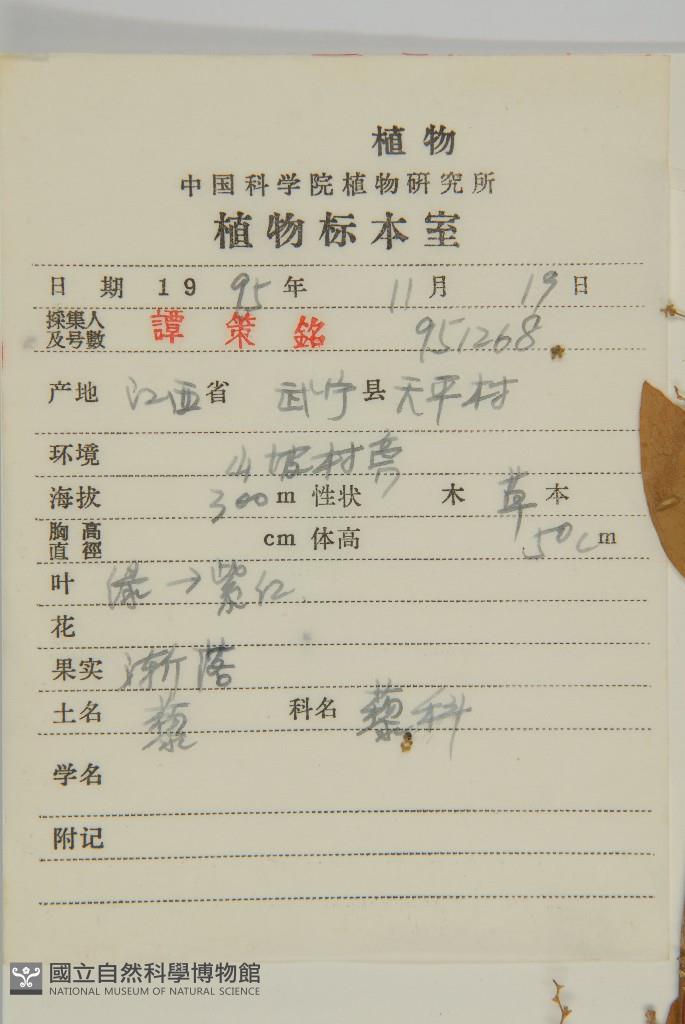 植物
中国科学院植物研究所
植物标本室
日 期 19 95 年 11 月 19 日
採集人及号數 譚策銘 951268
产地 江西 省 武宁 县 天平村
环境 山坡村旁
海拔 300 m 性状 木 草 本
胸高直徑 cm 体高 50 cm
叶 绿→紫红
花
果实 渐落
土名 藜 科名 藜科
学名
附记
國立自然科學博物館
NATIONAL MUSEUM OF NATURAL SCIENCE